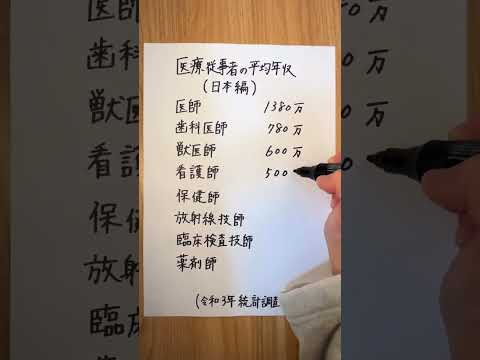 医療従事者の平均年収
(日本編)
医師 1380万
歯科医師 780万
獣医師 600万
看護師 500
保健師
放射線技師
臨床検査技師
薬剤師
(令和3年統計調査